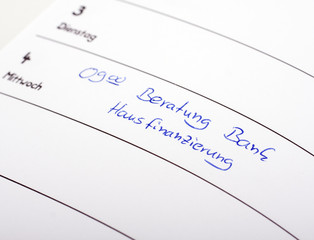 3
Dienstag
4
Mittwoch
09⁰⁰ Beratung Bank
Hausfinanzierung